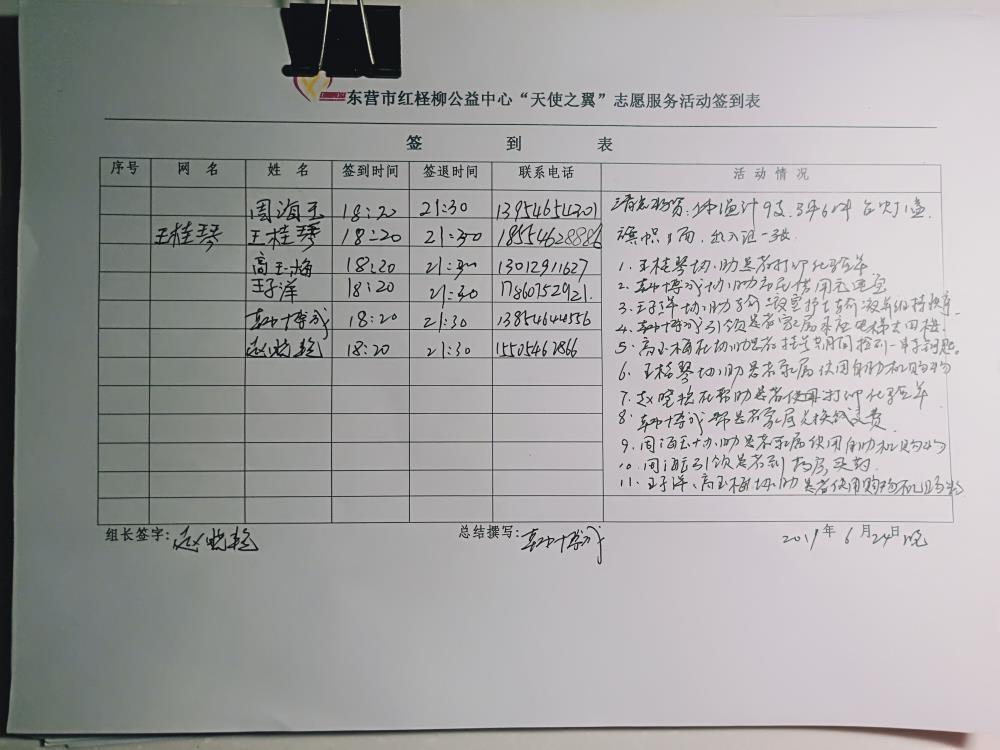 东营市红柽柳公益中心“天使之翼”志愿服务活动签到表
签 到 表
序号 网 名 姓 名 签到时间 签退时间 联系电话 活 动 情 况
周海玉 18:20 21:30 13954654301
王桂琴 王桂琴 18:20 21:30 18554628886
高玉梅 18:20 21:30 13012911627
王子洋 18:20 21:30 17860752921.
韩博成 18:20 21:30 13854644556
赵晓艳 18:20 21:30 15505462866
清点物资:体温计9支,
旗帜1面,出入证一张.
1. 王桂琴协助患者打印化验单.
2. 韩博成协助市民借用充电宝
3. 王子洋协助 护士 维持秩序
4. 韩博成引领患者家属 电梯 
5. 高玉梅 协助患者挂号 期间捡到一串钥匙.
6. 王桂琴协助患者家属使用自助机购物
7. 赵晓艳 帮助患者使用打印化验单
8. 韩博成帮患者家属兑换 费.
9. 周海玉协助患者家属使用自助机购物
10. 周海玉引领患者到药房买药.
11. 王子洋、高玉梅协助患者使用购物机购物
组长签字: 赵晓艳 总结撰写: 韩博成 2019年6月24日晚